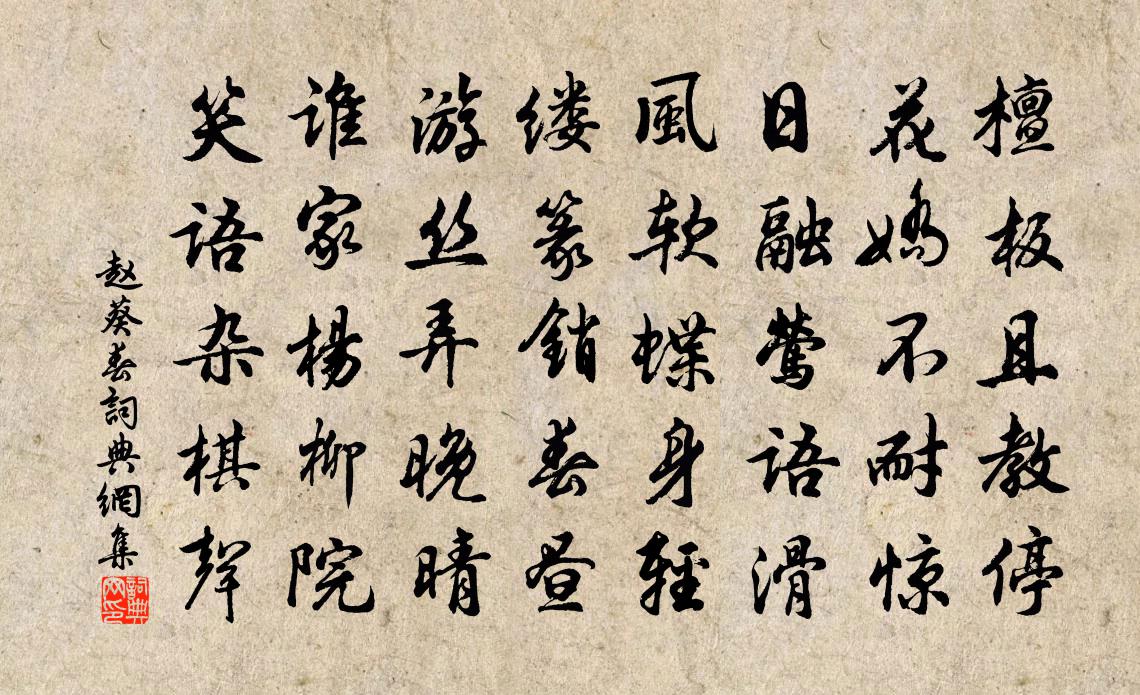 檀板且教停
花嬌不耐惊
日融鶯语滑
風软蝶身輕
缕篆銷春昼
游丝弄晚晴
谁家楊柳院
笑语杂棋聲
赵葵春詞典網集
詞典网印